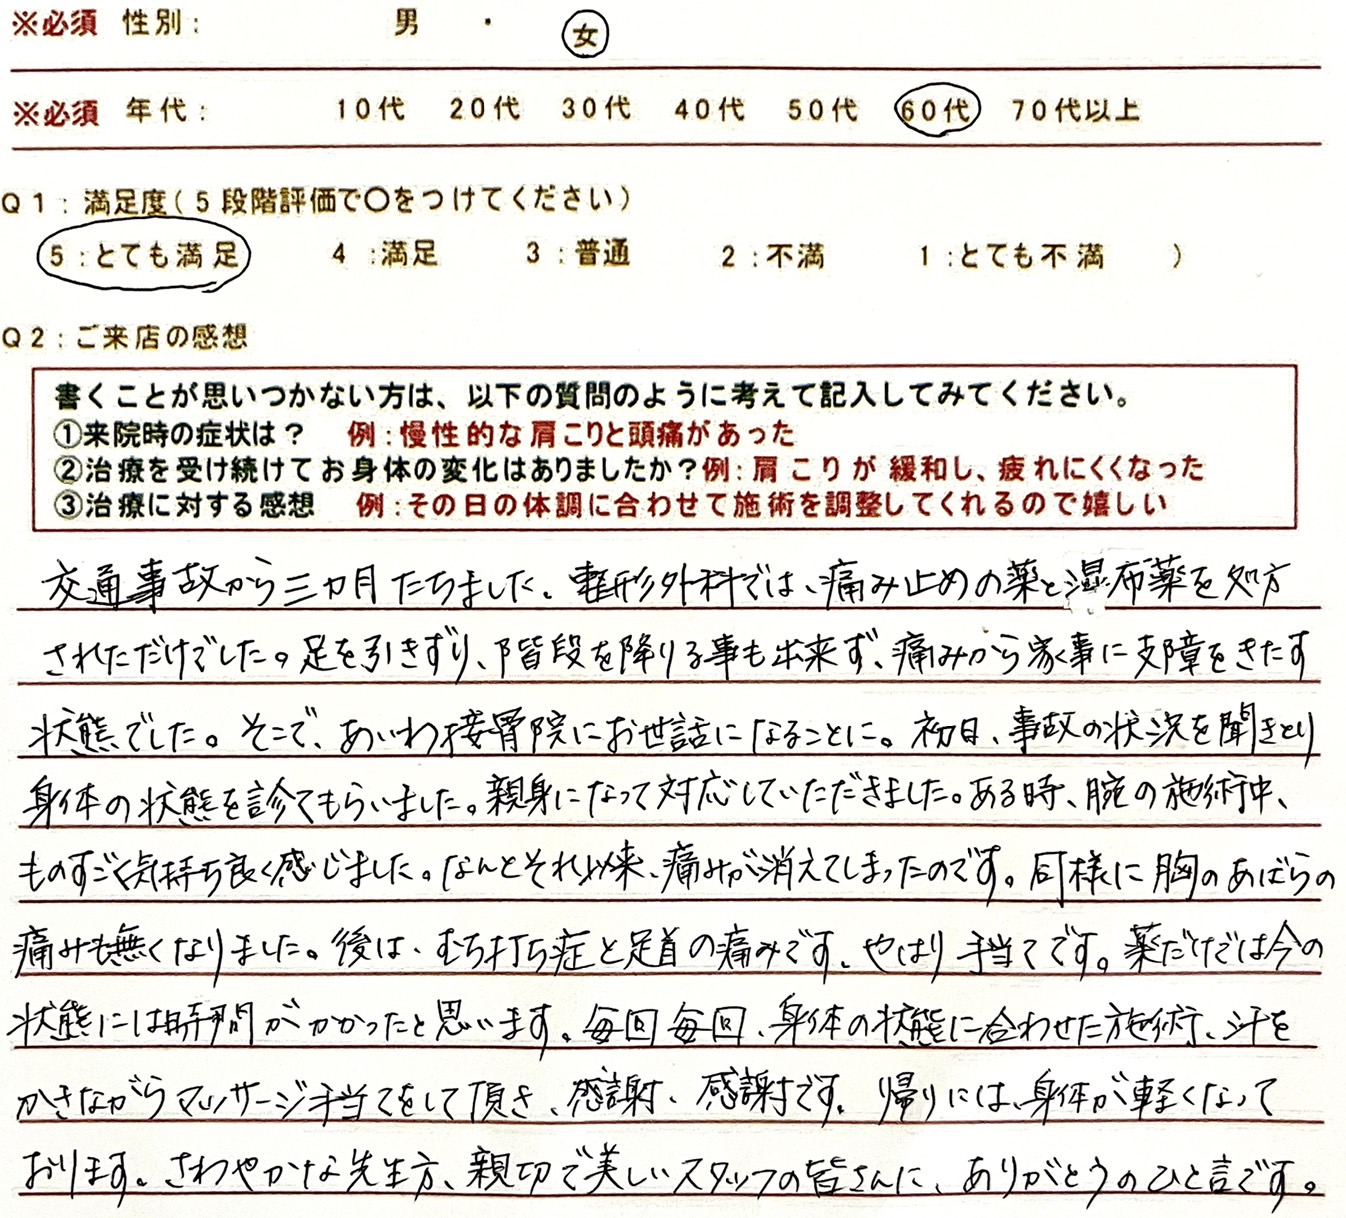 ※必須 性別: 男 ・ 女
※必須 年代: 10代 20代 30代 40代 50代 60代 70代以上
Q1:満足度(5段階評価で〇をつけてください)
5:とても満足 4:満足 3:普通 2:不満 1:とても不満 )
Q2:ご来店の感想
書くことが思いつかない方は、以下の質問のように考えて記入してみてください。
①来院時の症状は? 例:慢性的な肩こりと頭痛があった
②治療を受け続けてお身体の変化はありましたか?例:肩こりが緩和し、疲れにくくなった
③治療に対する感想 例:その日の体調に合わせて施術を調整してくれるので嬉しい
交通事故から三カ月たちました。整形外科では、痛み止めの薬と湿布薬を処方
されただけでした。足を引きずり、階段を降りる事も出来ず、痛みから家事に支障をきたす
状態でした。そこで、あいわ接骨院にお世話になることに。初日、事故の状況を聞きとり
身体の状態を診てもらいました。親身になって対応していただきました。ある時、腕の施術中、
ものすごく気持ち良く感じました。なんとそれ以来、痛みが消えてしまったのです。同様に胸のあばらの
痛みも無くなりました。後は、むち打ち症と足首の痛みです。やはり手当てです。薬だけでは今の
状態には時間がかかったと思います。毎回毎回、身体の状態に合わせた施術、汗を
かきながらマッサージ手当てをして頂き、感謝、感謝です。帰りには、身体が軽くなって
おります。さわやかな先生方、親切で美しいスタッフの皆さんに、ありがとうのひと言です。